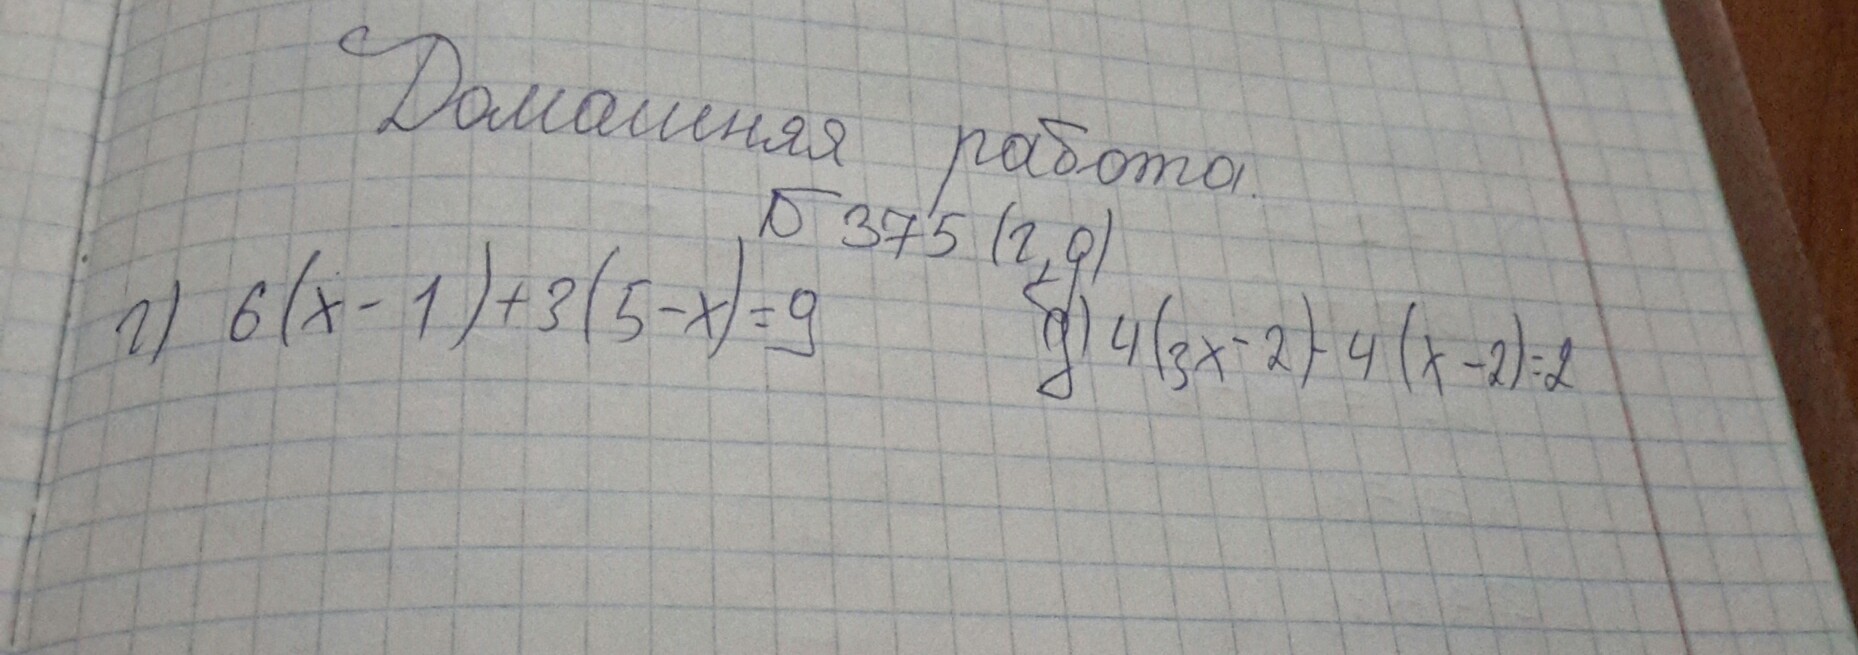 Домашняя работа.
Б 375 (г, д)
г) 6(x-1)+3(5-x)=9
д) 4(3x-2)-4(x-2)=2